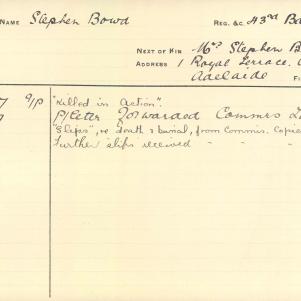 NAME Stephen Bowd REG. &C 43rd Ba
NEXT OF KIN Mrs Stephen B
ADDRESS 1 Royal Terrace.
Adelaide F
7 "Killed in Action".
P/letter forwarded Commrs
"Slips", re death & burial, from Commis. Copie
Further slips received " "